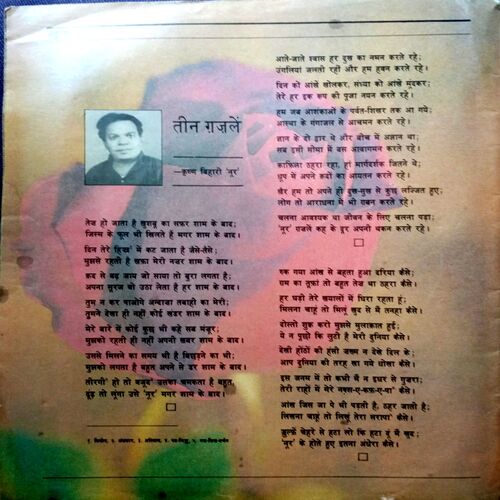 तीन ग़ज़लें
—कृष्ण बिहारी 'नूर'
तेज हो जाता है खुशबू का सफ़र शाम के बाद;
जिस्म के फूल भी खिलते हैं मगर शाम के बाद।
दिन तेरे हिज्र' में कट जाता है जैसे-तैसे;
मुझसे रहती है ख़फ़ा मेरी नज़र शाम के बाद।
क़द से बढ़ जाय जो साया तो बुरा लगता है;
अपना सूरज वो उठा लेता है हर शाम के बाद।
तुम न कर पाओगे अन्दाज़ा तबाही का मेरी;
तुमने देखा ही नहीं कोई खंडर शाम के बाद।
मेरे बारे में कोई कुछ भी कहे सब मंजूर;
मुझको रहती ही नहीं अपनी ख़बर शाम के बाद।
उससे मिलने का समय भी है बिछुड़ने का भी;
मुझको लगता है बहुत अपने से डर शाम के बाद।
तीरगी' हो तो वजूद' उसका चमकता है बहुत,
ढूंढ़ तो लूंगा उसे 'नूर' मगर शाम के बाद।
आते-जाते श्वास हर दुख का नमन करते रहे;
उंगलियां जलती रहीं और हम हवन करते रहे।
दिन को आंखें खोलकर, संध्या को आंखें मूंदकर;
तेरे हर इक रूप की पूजा नयन करते रहे।
हम जब आशंकाओं के पर्वत-शिखर तक आ गये;
आस्था के गंगाजल से आचमन करते रहे।
ज्ञान के दो द्वार थे और बीच में अज्ञान था;
सब इसी सीमा में बस आवागमन करते रहे।
क़ाफ़िला ठहरा रहा, हां मार्गदर्शक जितने थे;
धूप में अपने क़दों का आयतन करते रहे।
ख़ैर हम तो अपने ही दुख-सुख से कुछ लज्जित हुए;
लोग तो आराधना में भी ग़बन करते रहे।
चलना आवश्यक था जीवन के लिए चलना पड़ा;
'नूर' ग़ज़लें कह के दूर अपनी थकन करते रहे।
रुक गया आंख से बहता हुआ दरिया कैसे;
ग़म का तूफ़ां तो बहुत तेज था ठहरा कैसे।
हर घड़ी तेरे ख़यालों में घिरा रहता हूं;
मिलना चाहूं तो मिलूं खुद से मैं तनहा कैसे।
दोस्तो शुक्र करो मुझसे मुलाक़ात हुई;
ये न पूछो कि लुटी है मेरी दुनिया कैसे।
देखी होंठों की हंसी ज़ख्म न देखे दिल के;
आप दुनिया की तरह खा गये धोखा कैसे।
इस जनम में तो कभी मैं न इधर से गुज़रा;
तेरी राहों में मेरे नक्श-ए-कफ़-ए-पा' कैसे।
आंख जिस जा पे भी पड़ती है, ठहर जाती है;
लिखना चाहूं तो लिखूं तेरा सरापा' कैसे।
ज़ुल्फ़ें चेहरे से हटा लो कि हटा दूं मैं खुद;
'नूर' के होते हुए इतना अंधेरा कैसे।